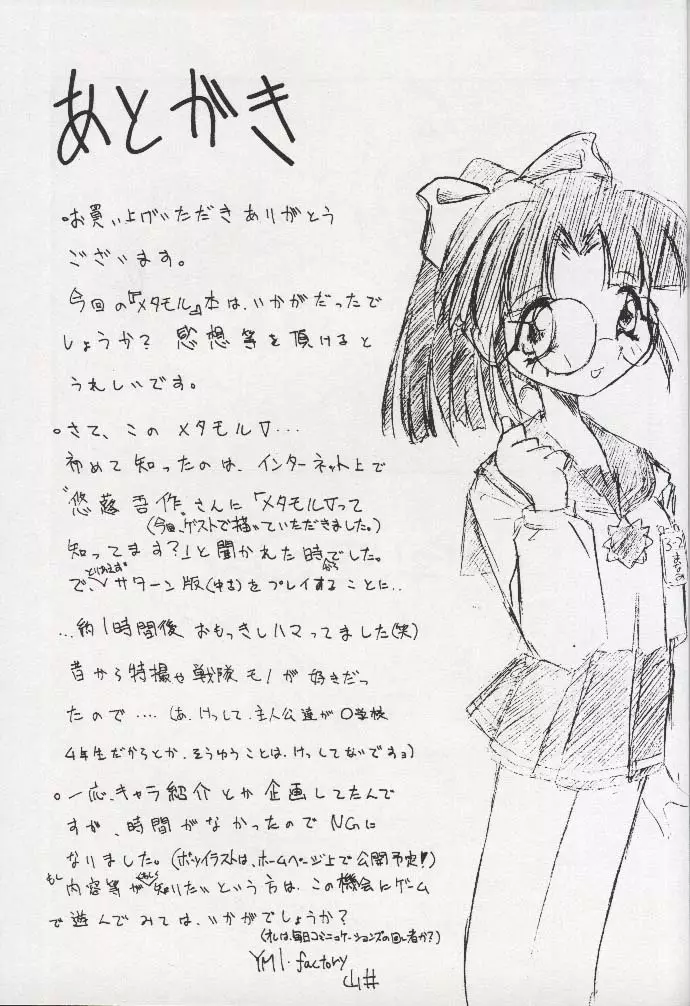 あとがき
○お買い上げいただきありがとう
ございます。
今回の『メタモル』本は、いかがだったで
しょうか？ 感想等を頂けると
うれしいです。
○さて、このメタモルV・・・
初めて知ったのは、インターネット上で
"悠藤吾作"さんに「メタモルVって
(今回、ゲストで描いていただきました。)
知ってます？」と聞かれた時でした。
で、とりあえずサターン版(中古)をプレイすることに..
…約1時間後 おもっきしハマってました(笑)
昔から特撮や戦隊モノが好きだっ
たので・・・・(あ、けっして、主人公達が○学校
4年生だからとか、そうゆうことは、けっしてないですョ)
○一応、キャラ紹介とか企画してたんで
すが、時間がなかったのでNGに
なりました。(ボツイラストは、ホームページ上で公開予定！)
もし内容等がくわしく知りたいという方は、この機会にゲーム
で遊んでみては、いかがでしょうか？
(オレは、毎日コミニュケーションズの回し者か？)
YMI・factory
山井